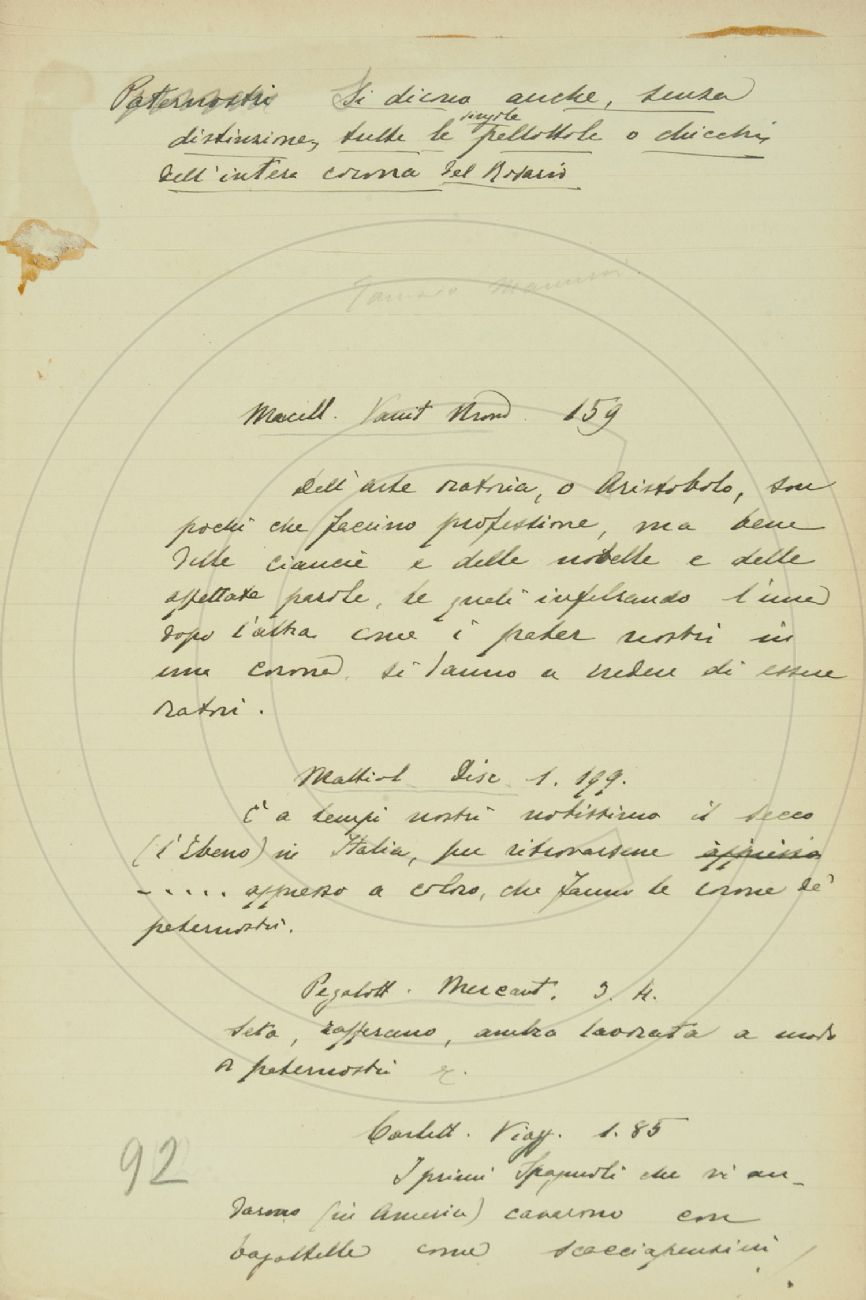 Paternostri Si dicono anche, senza
distinzione, tutte le singole pellottole o chicchi
dell'intera corona del Rosario
Macell. Vanit Mond. 159
Dell'arte oratoria, o Aristobolo, son
pochi che faccino professione, ma bene
delle ciancie e delle novelle e delle
affettate parole, le quali infilzando l'una
dopo l'altra come i pater nostri in
una corona, si danno a vedere di essere
oratori.
Mattiol. Disc 1. 199.
È a tempi nostri notissimo il secco
(l'Ebeno) in Italia, per ritrovarsene appresso
- . . . . appresso a coloro, che fanno le corone de'
paternostri.
Pegolott. Mercant. 3. 4.
Seta, zafferano, ambra lavorata a modo
di paternostri
Carlett. Viagg. 1. 85
I primi Spagnoli che vi an-
darono (in America) cavarono con
bagattelle come scacciapensieri
92